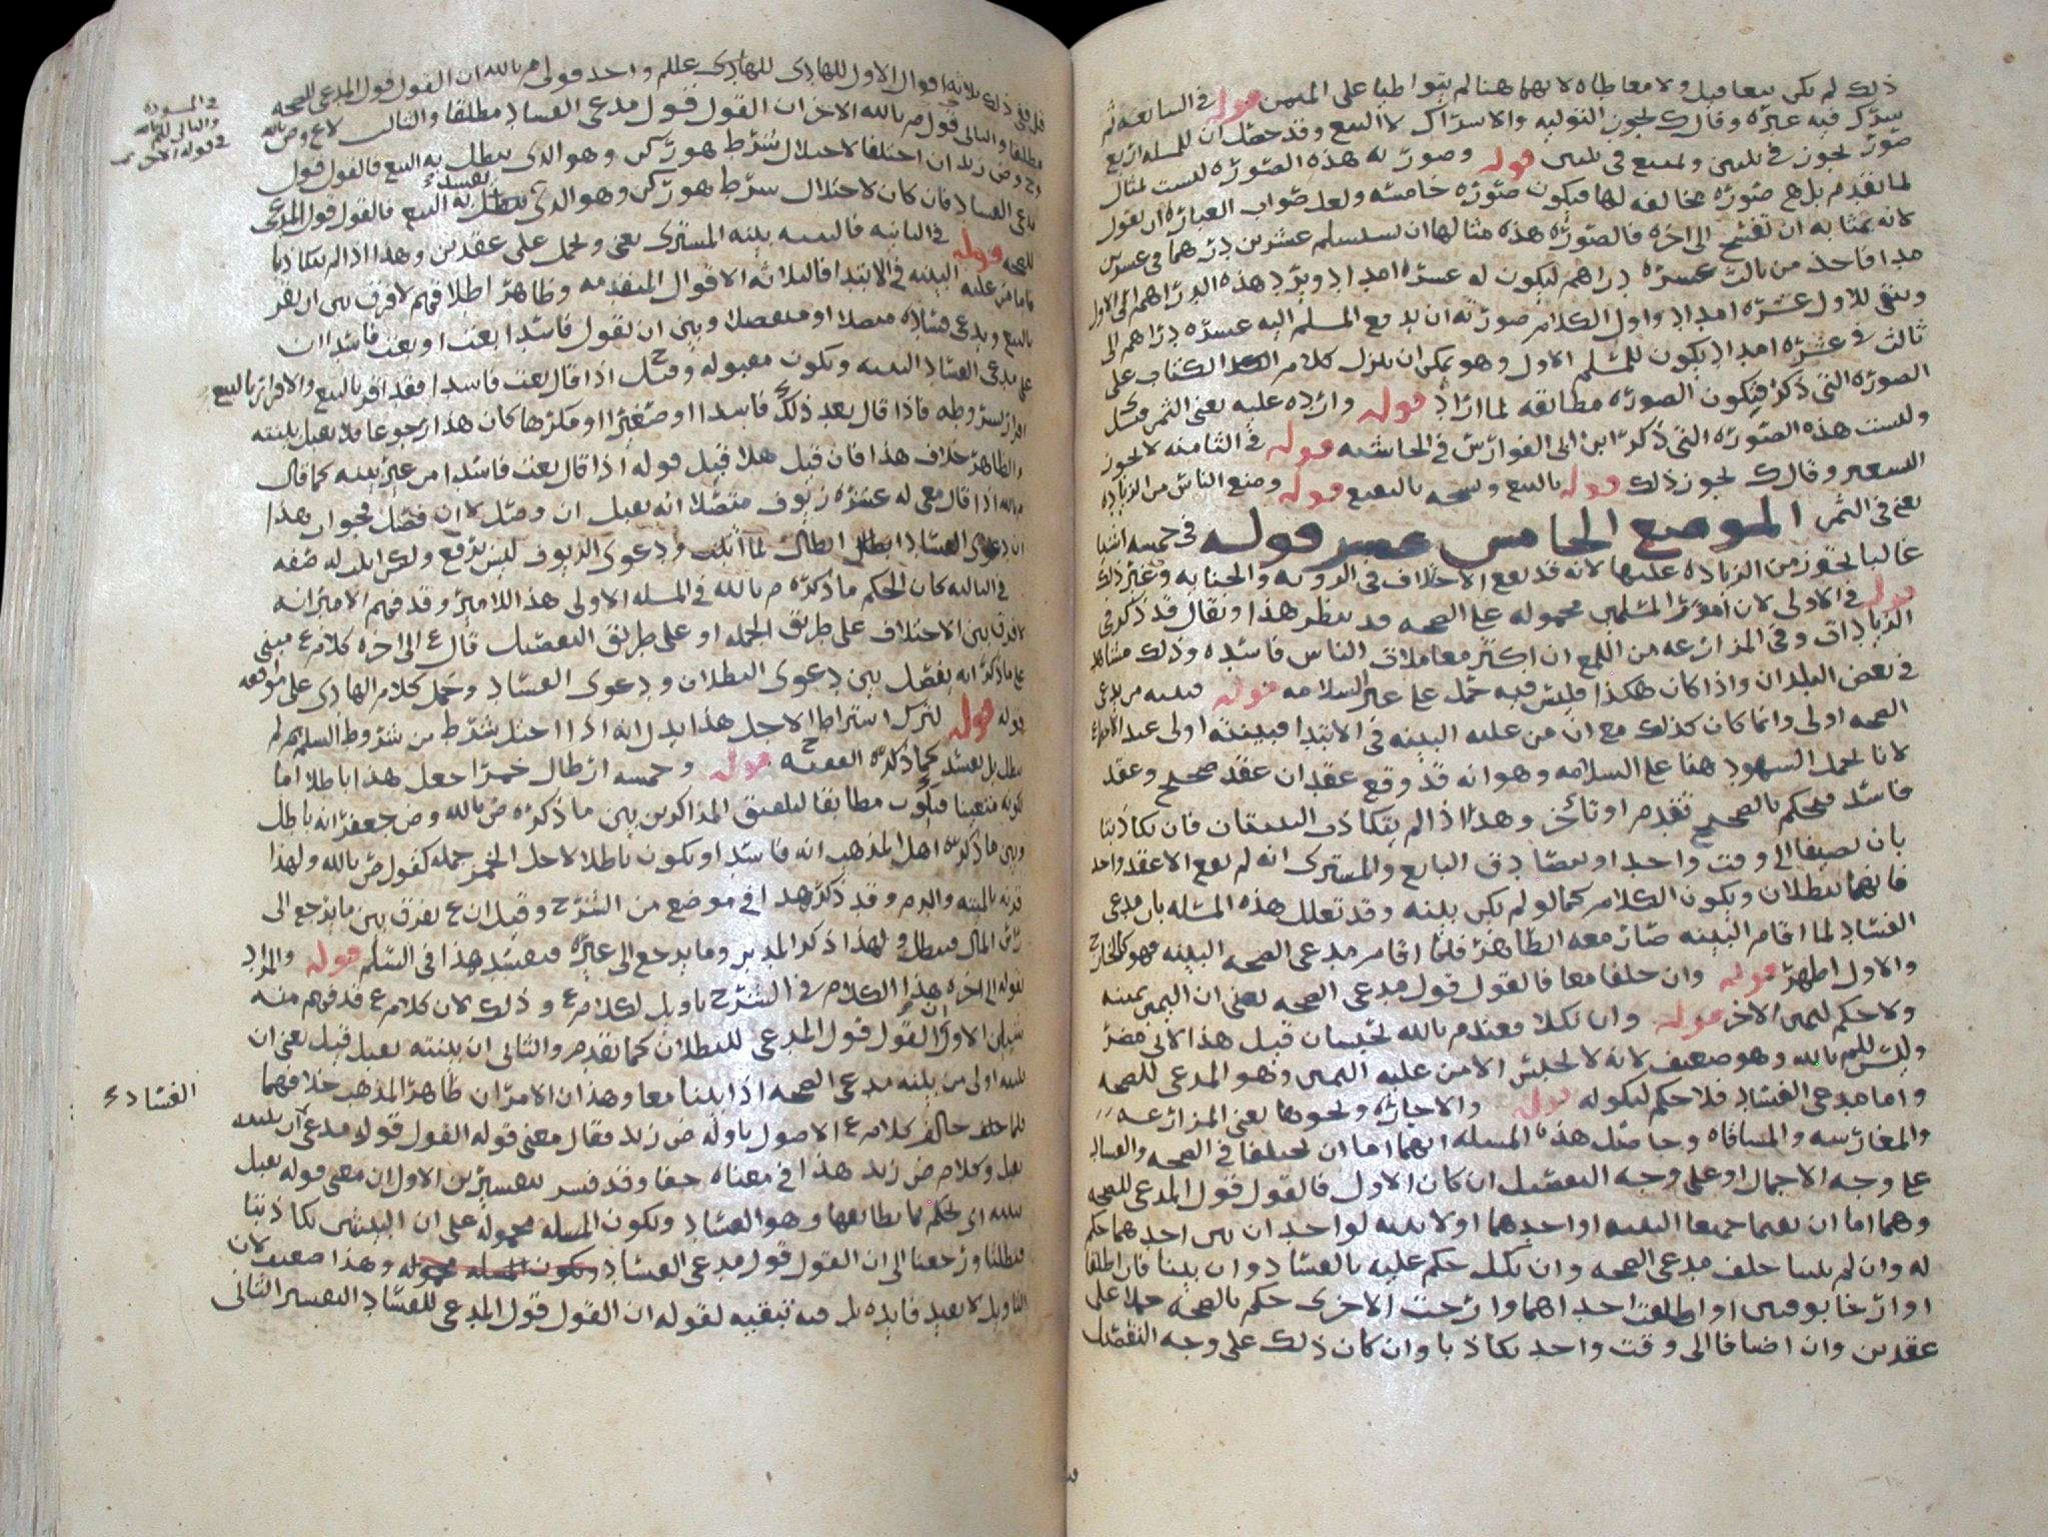 ذلك لم يكن بيعا قبل ولا معاطاه لانهما هنا لم يتواطيا على الثمن قوله في السابعه ثم
يشرك فيه غيره وقال ك يجوز التوليه والاشراك لا البيع وقد حصل ان للمسله اربع
صور يجوز في ثلثين ويمتنع في ثلثين قوله وصوريه هذه الصوره ليست لمثال
لما تقدم بل هي صوره مخالفه لها فيكون صوره خامسه ولعل صواب العباره ان يقول
لانه بمثابه ان تفتتح الى اخره فالصوره هذه مثالها ان يستسلم عشرين درهما في عشرين
مدا فاخذ من ثالث عشره دراهم ليكون له عشره امداد ويرد هذه الدراهم الى الاول
ويبقى للاول عشره امداد واول الكلام صورته ان يدفع المسلم اليه عشره دراهم الى
ثالث في عشره امداد يكون للمسلم الاول وهو يمكن ان ينزل كلام الكتاب على
الصوره التي ذكر فيكون الصوره مطابقه لما اراد قوله وارده عليه يعني الثمن مشكل
وليست هذه الصوره التي ذكر ابن ابي الفوارس في الحاشيه قوله في الثامنه لا يجوز
التسعير وقال ك يجوز ذلك قوله بالبيع ونسخه بالبقيع قوله ومنع الناس من الزياده
يعني في الثمن الموضع الخامس عشر قوله في خمسه اشيا
غالبا يحترز من الزياده عليها لانه قد يقع الاختلاف في الرويه والجنايه وغير ذلك
قوله في الاولى لان امور المسلمين محموله على الصحه قد ينظر هذا ويقال قد ذكر في
الزيادات وفي المزارعه من اللمع ان اكثر معاملات الناس فاسده وذلك مشاهد
في بعض البلدان واذا كان هكذا فليس فيه حمل على غير السلامه قوله فبينه مدعي
الصحه اولى وانما كان كذلك مع ان من عليه البينه في الابتدا فبينته اولى عند
لانا نحمل الشهود هنا على السلامه وهو انه قد وقع عقدان عقد صحيح وعقد
فاسد فيحكم بالصحيح تقدم او تاخر وهذا اذا لم يتكاذب البينتان فان تكاذبتا
بان يضيفا الى وقت واحد او يتصادق البايع والمشتري انه لم يقع الا عقد واحد
فانهما يبطلان ويكون الكلام كما لو لم يكن بينه وقد تعلل هذه المسله بان مدعي
الفساد لما اقام البينه صار معه الظاهر فلما اقام مدعي الصحه البينه فهو كالخارج
والاول اظهر قوله وان حلفا معا فالقول قول مدعي الصحه يعني ان اليمين يمينه
ولا حكم ليمين الاخر قوله وان نكلا فعند م بالله يحبسان قيل هذا
وليس للم بالله وهو ضعيف لانه لا يحبس الا من عليه اليمين وهو المدعي للصحه
واما مدعي الفساد فلا حكم لنكوله قوله والاجاره ونحوها يعني المزارعه
والمغارسه والمساقاه وحاصل هذه المسله انهما اما ان يختلفا في الصحه والفساد
على وجه الاجمال او على وجه التفصيل ان كان الاول فالقول قول المدعي للصحه
وهما اما ان يقيما جميعا البينه او احدهما او لا بينه لواحد ان بين احدهما حكم
له وان لم يبينا حلف مدعي الصحه وان نكل حكم عليه بالفساد وان بينا فان اطلقا
او ارخا بوقتين او اطلقت احداهما وارخت الاخرى حكم بالصحه حملا على
عقدين وان اضافا الى وقت واحد تكاذبا وان كان ذلك على وجه التفصيل
ففي ذلك ثلاثه اقوال الاول للهادي علم واحد قولي م بالله ان القول قول المدعي للصحه
مطلقا والثاني قول م بالله الاخر ان القول قول مدعي الفساد مطلقا والثالث لاع وض بالله
وح وض زيد ان اختلفا لاختلال شرط هو ركن وهو الذي يبطل به البيع فالقول قول
مدعي الفساد فان كان لاختلال شرط هو ركن وهو الذي يفسد به البيع فالقول قول المدعي
للصحه قوله في الثانيه فالبينه بينه المشتري يعني ويحمل على عقدين وهذا اذا لم يتكاذبا
فاما من عليه البينه في الابتدا فالثلاثه الاقوال المتقدمه وظاهر اطلاقهم لا فرق بين ان يقر
بالبيع ويدعي فساده متصلا او منفصلا وبين ان يقول فاسدا بعت او بعت فاسدا ان
على مدعي الفساد البينه ويكون مقبوله وقيل ح اذا قال بعت فاسدا فقد اقر بالبيع والاقرار بالبيع
اقرار بشروطه فاذا قال بعد ذلك فاسدا او صغيرا او مكرها كان هذا رجوعا فلا يقبل بينته
والظاهر خلاف هذا فان قيل هلا قبل قوله اذا قال بعت فاسدا من غير بينه كما قال
م بالله اذا قال معي له عشره زيوف متصلا انه يقبل ان وصل لا ان فصل فجوابه هذا
ان دعوى الفساد ابطال لما اثبت ودعوى الزيوف ليس يرفع ولكن اثبت له صفه
في الثالثه كان الحكم ما ذكره م بالله في المسله الاولى هذا اللامير وقد فهم الامير انه
لا فرق بين الاختلاف على طريق الجمله او على طريق التفصيل قال ع الى اخره كلام ع مبني
على ما ذكر انه يفصل بين دعوى البطلان ودعوى الفساد وحمل كلام الهادي على موافقه
قوله قوله لترك اشتراط الاجل هذا يدل انه اذا اختل شرط من شروط السلم لم
يبطل بل يفسد كما ذكره الفقيه ح قوله وخمسه ارطال خمرا جعل هذا باطلا اما
لكونه متعينا فيكون مطابقا لتلفيق المذاكرين بين ما ذكره ض بالله وض جعفر انه باطل
وبين ما ذكره اهل المذهب انه فاسد او يكون باطلا لاجل الخمر جمله كقول ض بالله ولهذا
قرنه بالميته والدم وقد ذكر هذا في موضع من الشرح وقيل ان ع يفرق بين ما يرجع الى
راس المال فيبطل ولهذا ذكر المدبر وما يرجع الى غيره فيفسد هذا في السلم قوله والمراد
بقوله الى اخره هذا الكلام في الشرح تاويل لكلام ع وذلك لان كلام ع قد فهم منه
شيئين الاول ان القول قول المدعي للبطلان كما تقدم والثاني ان بينته تقبل قيل يعني ان
بينته اولى من بينه مدعي الصحه اذا بينا معا وهذان الامران ظاهر المذهب خلافهما
فلما خالف كلام ع الاصول تاوله ض زيد فقال معنى قوله القول قول مدعي ان بينته
تقبل وكلام ض زيد هذا في معناه خفا وقد فسر تفسيرين الاول ان معنى قوله يقبل
بينته اي يحكم بما يطابقها وهو الفساد ويكون المسله محموله على ان البينتين تكاذبتا
فبطلتا ورجعنا الى ان القول قول مدعي الفساد ويكون المسله محموله وهذا ضعيف لان
التاويل لا يفيد فايده بل فيه تبقيه لقوله ان القول قول المدعي للفساد التفسير الثاني
الفساد ع